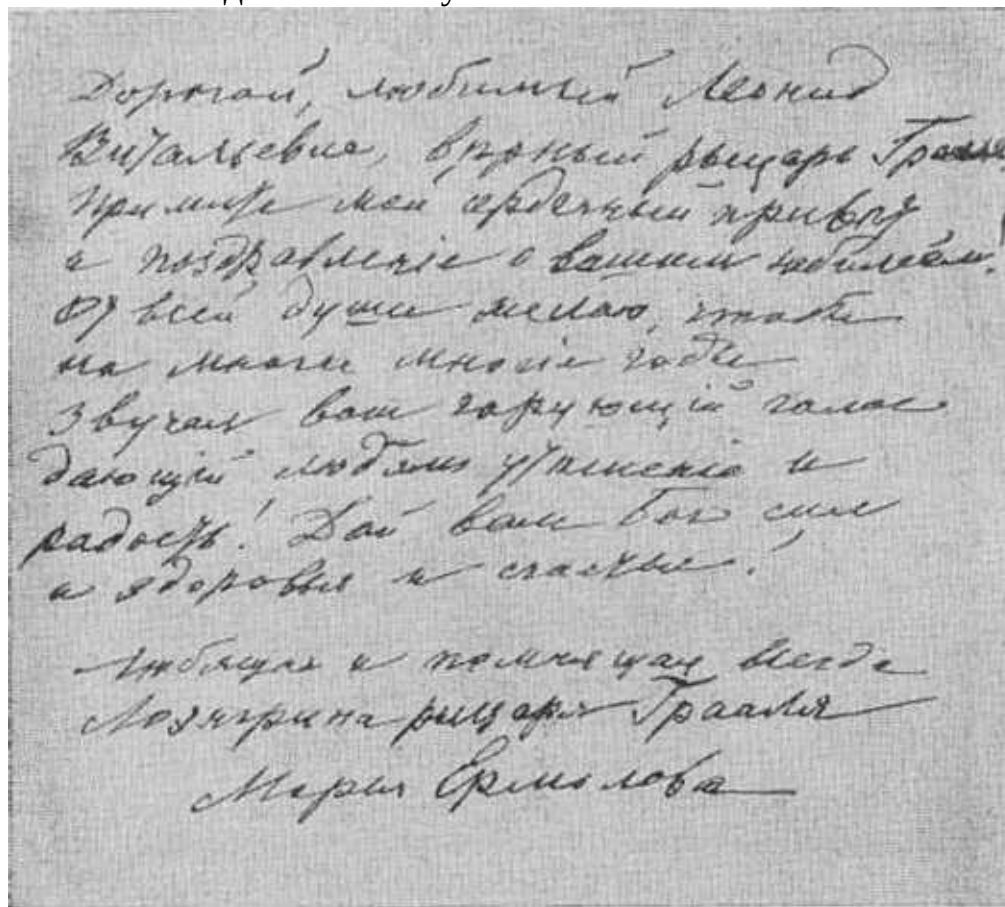 Дорогой, любимый Леонид
Витальевич, вѣрный рыцарь Грааля
примите мой сердечный привет
и поздравленіе с вашим юбилеем.
От всей души желаю, чтобы
на многіе многіе годы
звучал ваш чарующій голос
дающій людям утѣшеніе и
радость! Дай вам бог сил
и здоровья и счастья!
Любящая и помнящая всегда
Лоэнгрина рыцаря Грааля
Мария Ермолова